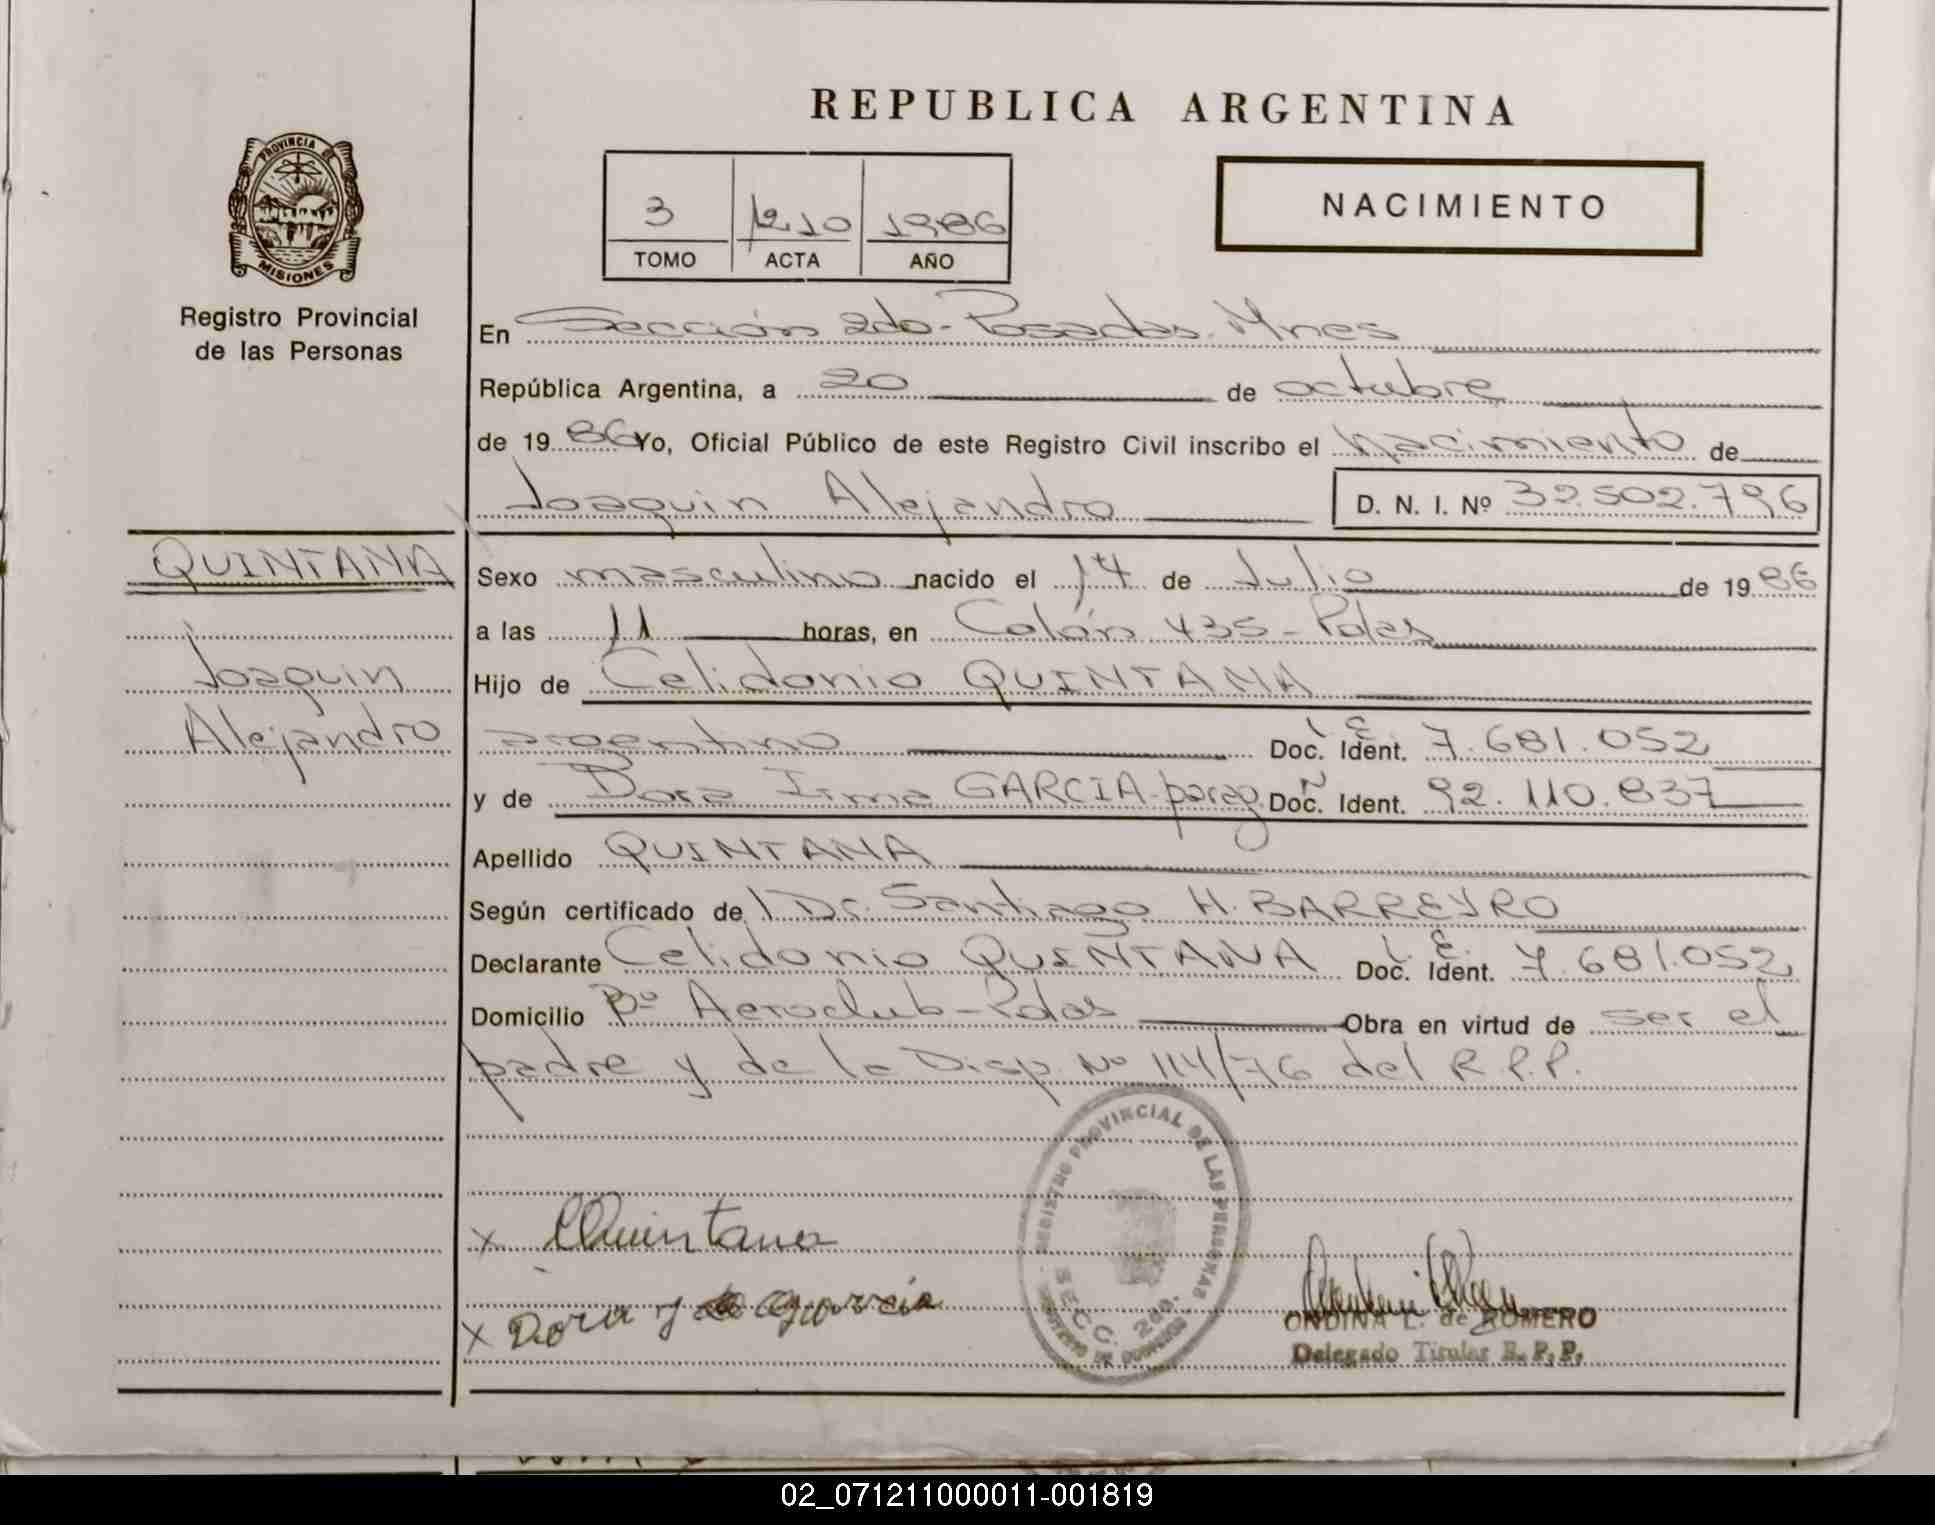 REPUBLICA ARGENTINA
PROVINCIA DE
MISIONES
Registro Provincial
de las Personas
3 1210 1986
TOMO ACTA AÑO
NACIMIENTO
En Sección 2do - Posadas - Mnes
República Argentina, a 20 de octubre
de 1986 Yo, Oficial Público de este Registro Civil inscribo el nacimiento de
Joaquin Alejandro D. N. I. Nº 32.502.796
QUINTANA
Joaquin
Alejandro
Sexo masculino nacido el 14 de Julio de 1986
a las 11 horas, en Colón 435 - Pdas
Hijo de Celidonio QUINTANA
argentino L.E. Doc. Ident. 7.681.052
y de Dora Irma GARCIA - parag. Doc. Ident. 92.110.837
Apellido QUINTANA
Según certificado del Dr. Santiago H. BARREYRO
Declarante Celidonio QUINTANA L.E. Doc. Ident. 7.681.052
Domicilio Bº Aeroclub - Pdas Obra en virtud de ser el
padre y de la Disp. Nº 114/76 del R.P.P.
REGISTRO PROVINCIAL DE LAS PERSONAS
SECC. 2do.
x CQuintana
x Dora y de Garcia
ONDINA L. de ROMERO
Delegado Titular R. P. P.
02_071211000011-001819